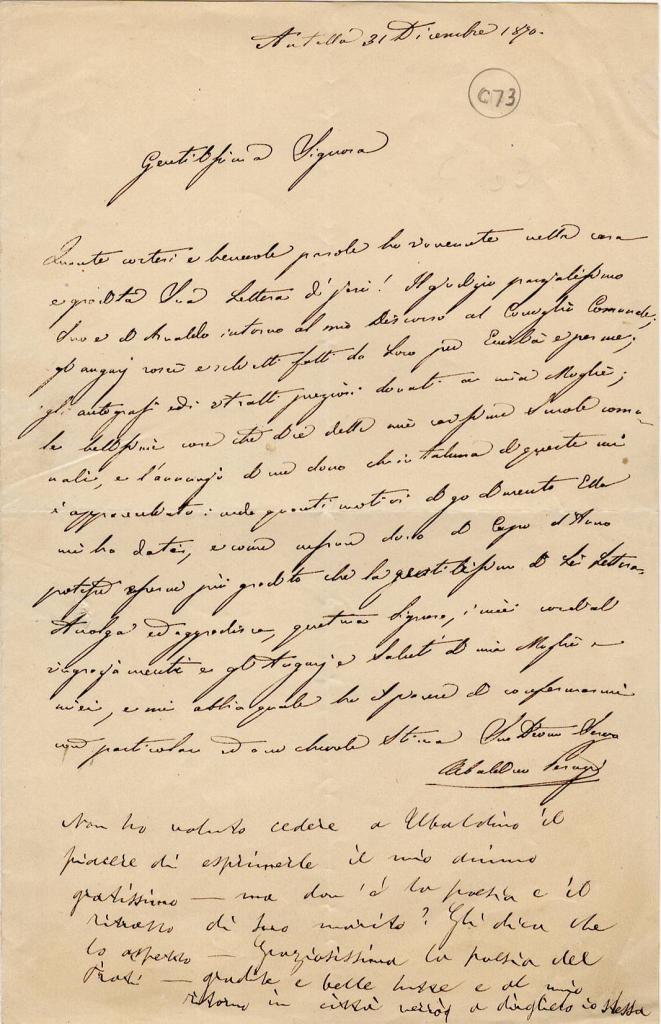 Antella 31 Dicembre 1870.
073
Gentilissima Signora
Quante cortesi e benevole parole ho rinvenute nella cara
e gradita Sua Lettera di jeri! Il giudizio parzialissimo
Suo e di intorno al mio Discorso al Consiglio Comunale;
gli augurj rosei e schietti fatti da Loro per Emilia e per me;
gli autografi ed i ritratti preziosi donati a mia Moglie;
le bellissime cose che dice delle mie Scuole comu-
nali, e l'annunzio di un dono che in taluna di queste mi
è apparecchiato: quanti motivi di Ella
mi ha dati, e come nessun dono di Capo d'Anno
potesse essermi più gradito che la gentilissima di Lei Lettera.
Accolga ed aggradisca, Signora, i miei cordiali
ringraziamenti e gli Augurj e Saluti di mia Moglie e
miei, e mi abbia quale ho il piacere di confermarmi
con particolare ed amichevole Stima Suo Devmo Servo
Ubaldino Peruzzi
Non ho voluto cedere a Ubaldino il
piacere di esprimerle il mio animo
gratissimo — ma dov'è la poesia e il
ritratto di suo marito? Gli dica che
lo aspetto — Graziosissima la poesia del
Prati — gradite e belle tutte e al mio
ritorno in città verrò a dirglielo io stessa